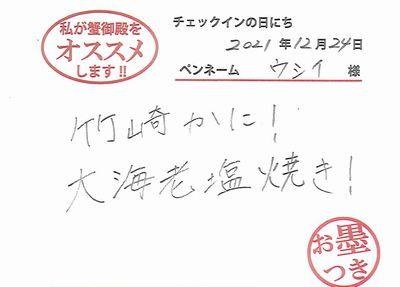 私が蟹御殿を
オススメ
します!!
チェックインの日にち
2021年12月24日
ペンネーム ウシイ 様
竹崎かに!
大海老塩焼き!
お墨
つき